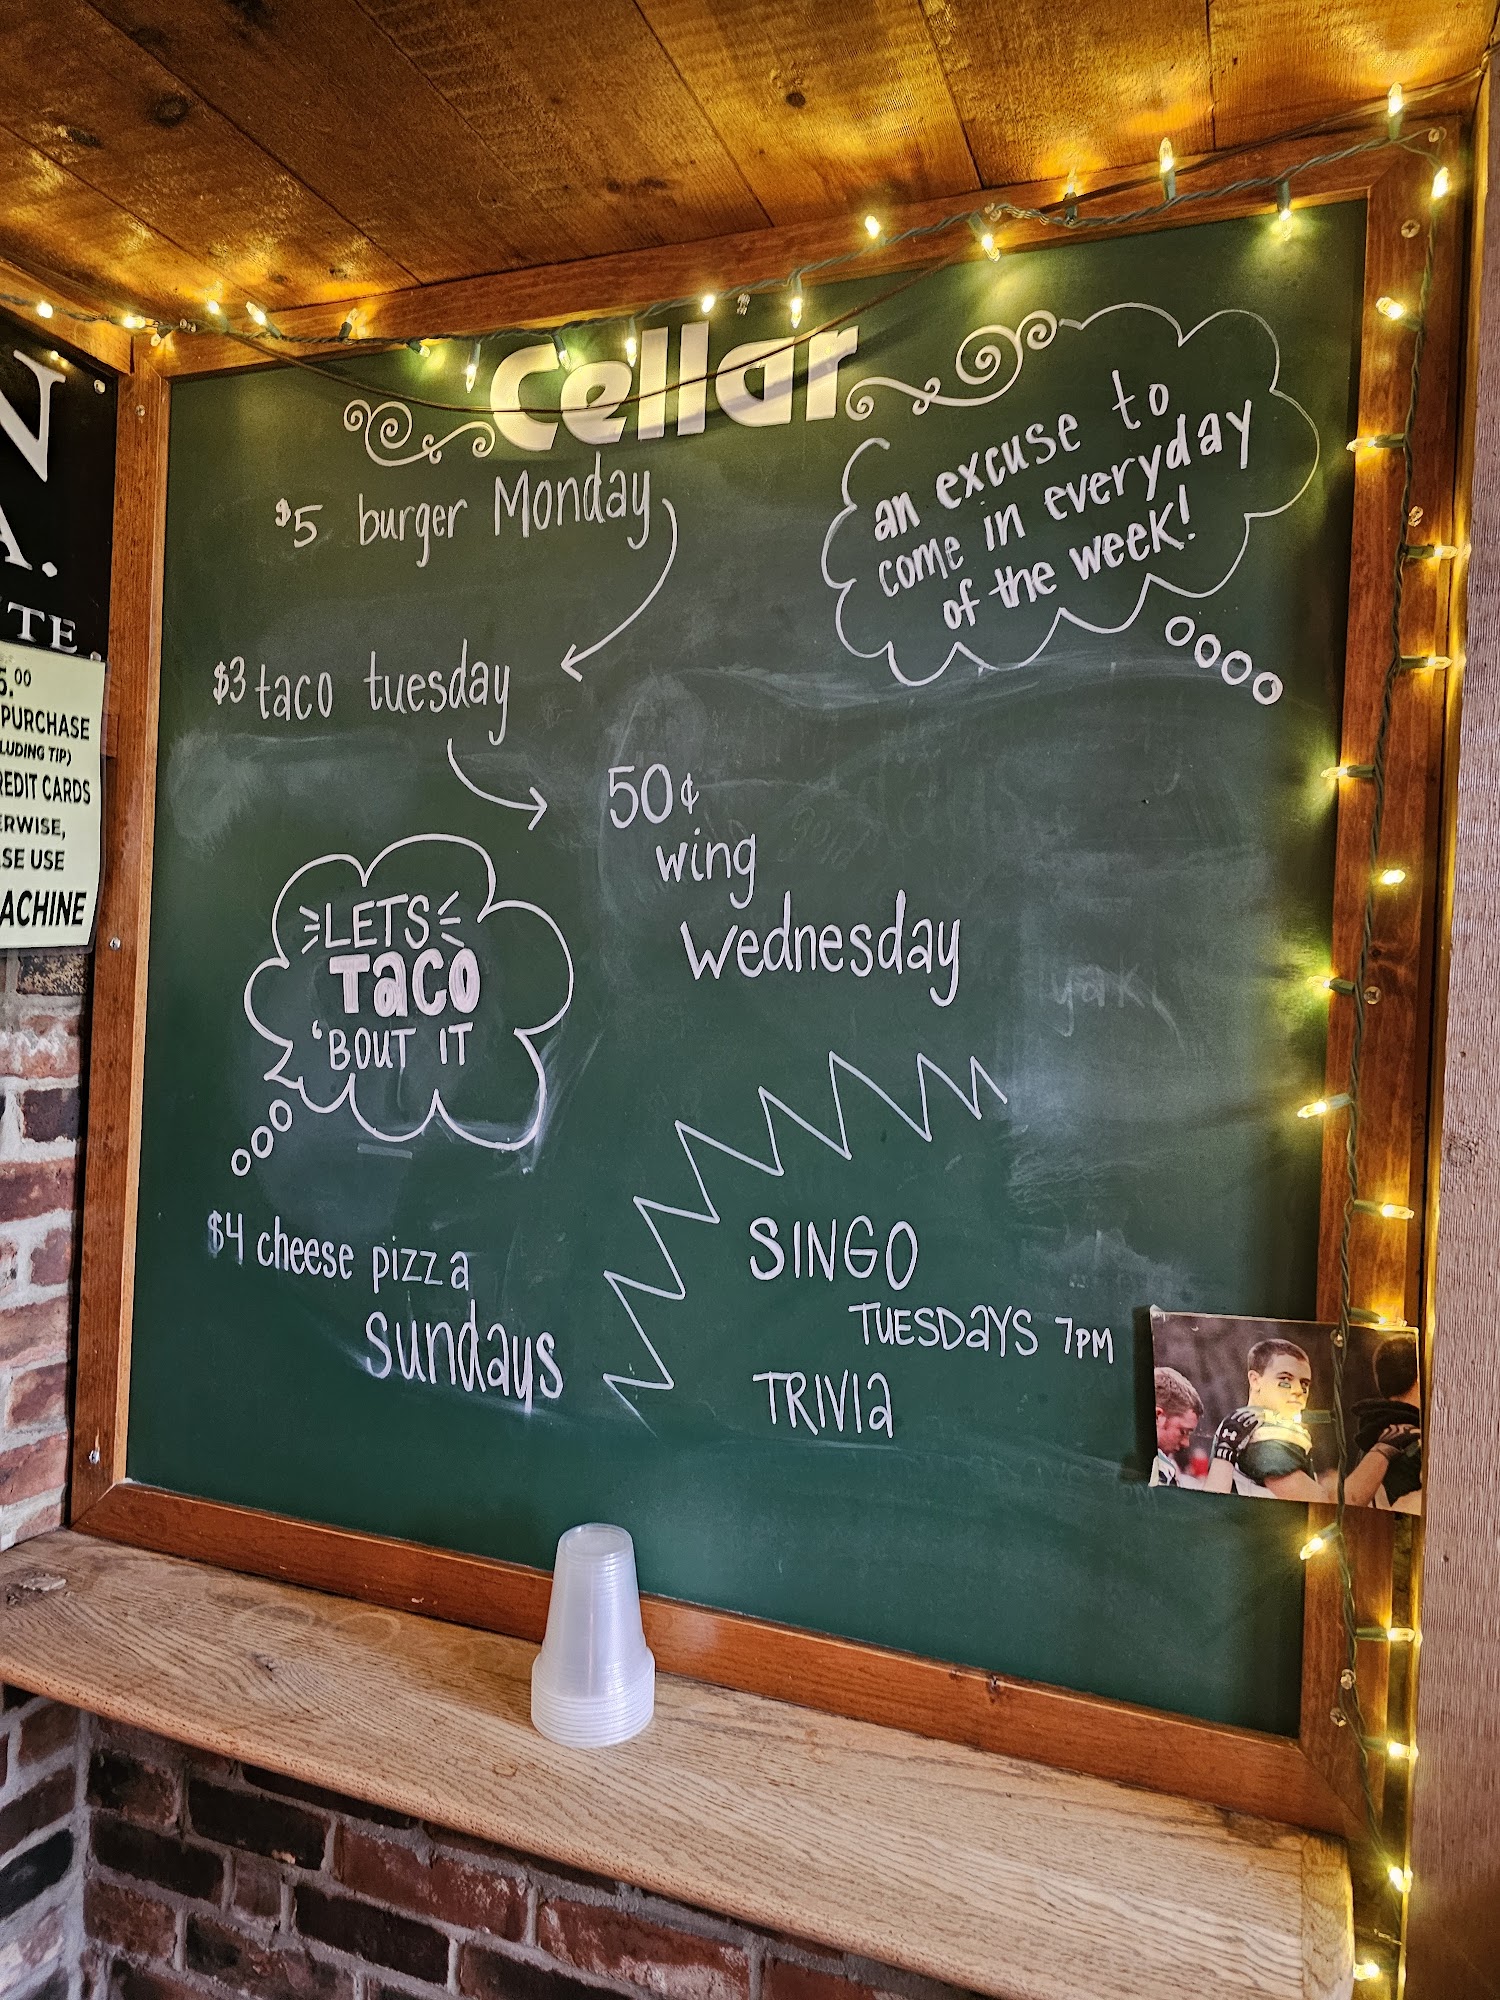 Cellar
$5 burger Monday
an excuse to
come in everyday
of the week!
$3 taco tuesday
50¢
wing
wednesday
LETS
TACO
'BOUT IT
$4 cheese pizza
sundays
SINGO
TUESDAYS 7PM
TRIVIA
N
A.
TE.
5.00
PURCHASE
LUDING TIP)
REDIT CARDS
ERWISE,
SE USE
ACHINE